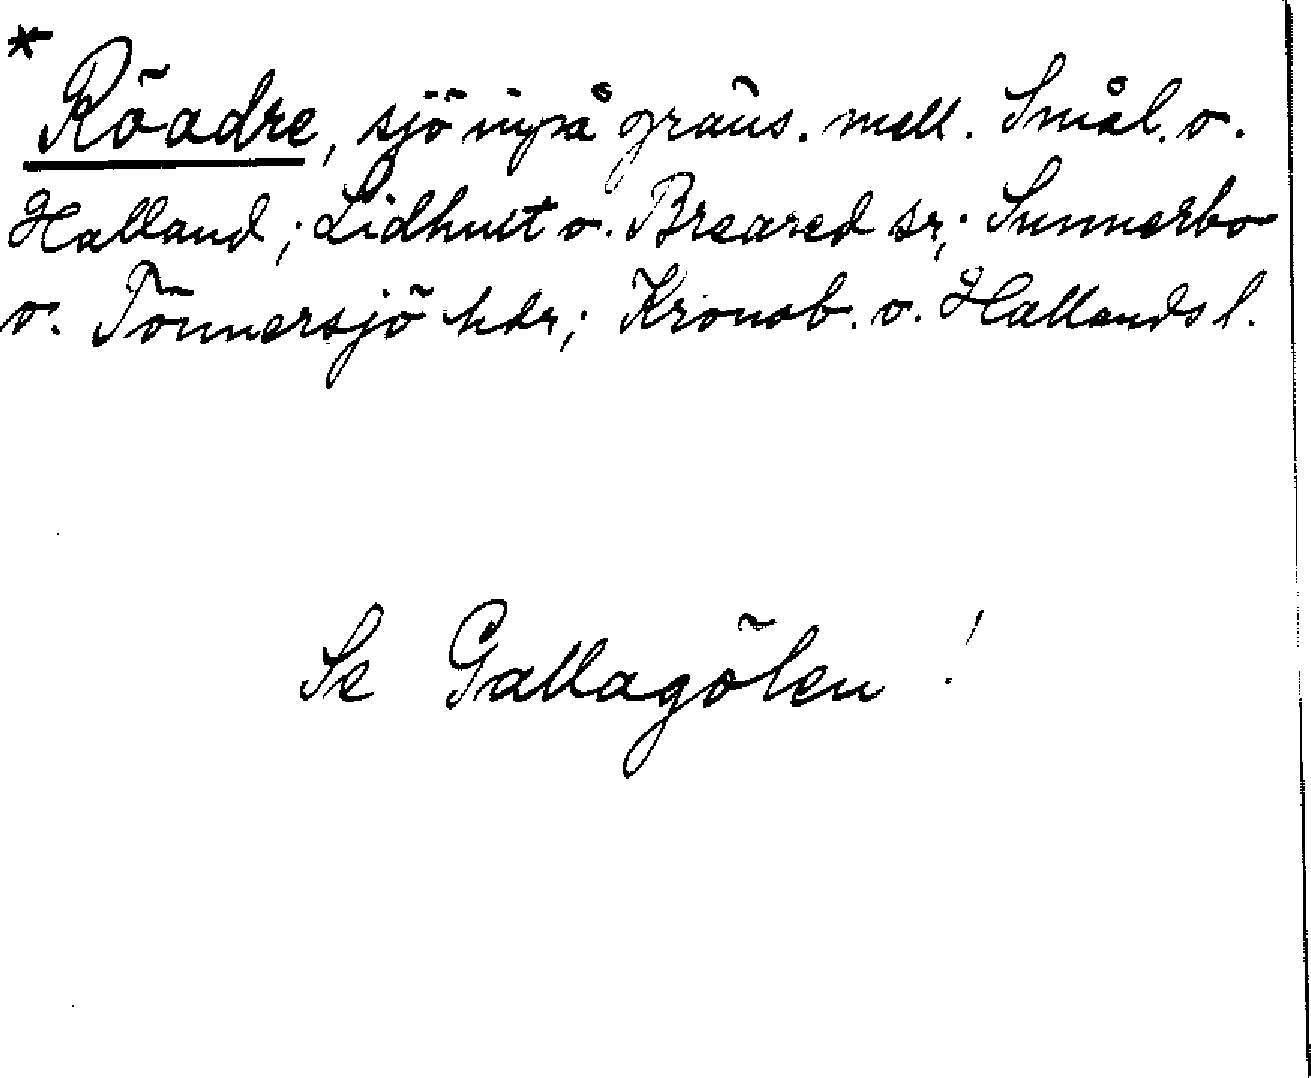 * Röadre, sjö inpå gräns. mell. Smål. o.
Halland; Lidhult o. Breared sr; Sunnerbo
o. Tönnersjö hdr; Kronob. o. Hallands l.
Se Gallagölen !